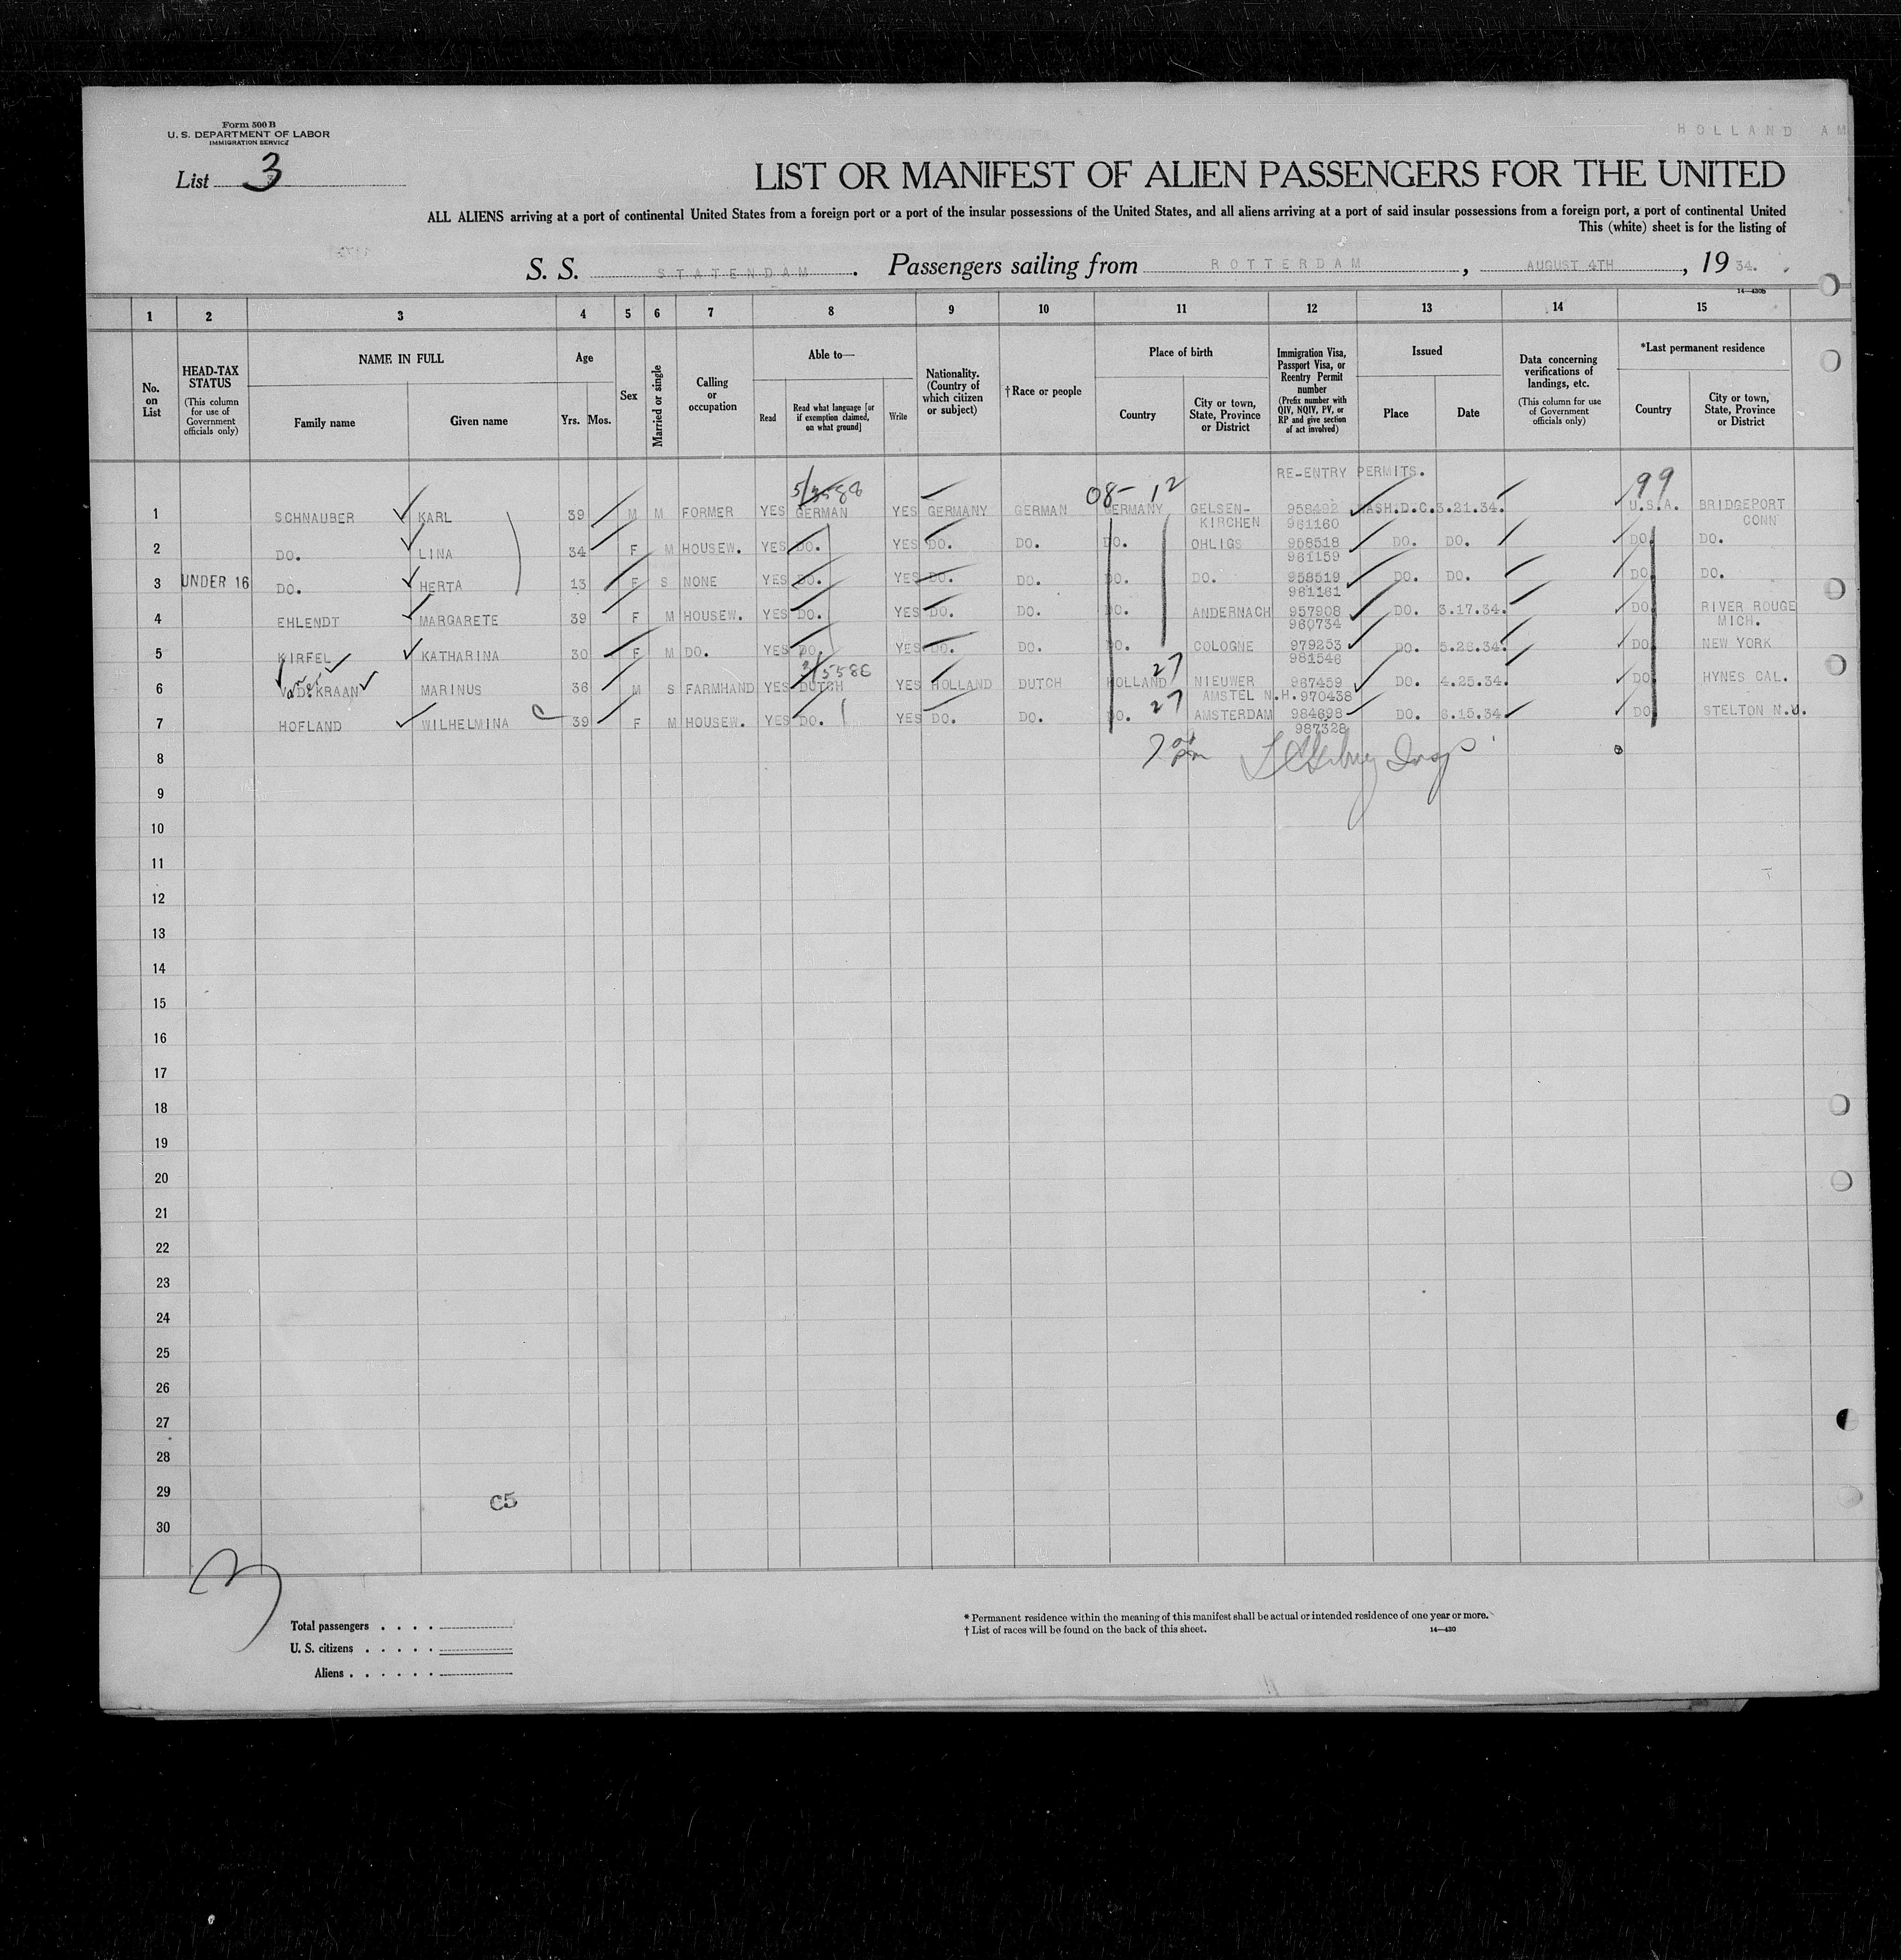 HOLLAND AM
Form 500 B
U. S. DEPARTMENT OF LABOR
IMMIGRATION SERVICE
List 3
LIST OR MANIFEST OF ALIEN PASSENGERS FOR THE UNITED
ALL ALIENS arriving at a port of continental United States from a foreign port or a port of the insular possessions of the United States, and all aliens arriving at a port of said insular possessions from a foreign port, a port of continental United
This (white) sheet is for the listing of
S. S. STATENDAM. Passengers sailing from ROTTERDAM, AUGUST 4TH, 1934.
14—430b
1 2 3 4 5 6 7 8 9 10 11 12 13 14 15
No. on List
HEAD-TAX STATUS (This column for use of Government officials only)
NAME IN FULL
Family name Given name
Age
Yrs. Mos.
Sex
Married or single
Calling or occupation
Able to—
Read
Read what language [or if exemption claimed, on what ground]
Write
Nationality. (Country of which citizen or subject)
†Race or people
Place of birth
Country
City or town, State, Province or District
Immigration Visa, Passport Visa, or Reentry Permit number (Prefix number with QIV, NQIV, PV, or RP and give section of act involved)
Issued
Place Date
Data concerning verifications of landings, etc. (This column for use of Government officials only)
*Last permanent residence
Country
City or town, State, Province or District
RE-ENTRY PERMITS.
08-12 99
1 SCHNAUBER KARL 39 M M FORMER YES GERMAN YES GERMANY GERMAN GERMANY GELSEN- 958492 WASH.D.C. 3.21.34. U.S.A. BRIDGEPORT
KIRCHEN 961160 CONN
2 DO. LINA 34 F M HOUSEW. YES DO. YES DO. DO. DO. OHLIGS 958518 DO. DO. DO. DO.
961159
3 UNDER 16 DO. HERTA 13 F S NONE YES DO. YES DO. DO. DO. DO. 958519 DO. DO. DO. DO.
961161
4 EHLENDT MARGARETE 39 F M HOUSEW. YES DO. YES DO. DO. DO. ANDERNACH 957908 DO. 3.17.34. DO. RIVER ROUGE
960734 MICH.
5 KIRFEL KATHARINA 30 F M DO. YES DO. YES DO. DO. DO. COLOGNE 979253 DO. 5.28.34. DO. NEW YORK
981546
27
6 V.D.KRAAN MARINUS 36 M S FARMHAND YES DUTCH YES HOLLAND DUTCH HOLLAND NIEUWER 967459 DO. 4.25.34. DO. HYNES CAL.
AMSTEL N.H. 970438
27
7 HOFLAND WILHELMINA 39 F M HOUSEW. YES DO. YES DO. DO. DO. AMSTERDAM 984698 DO. 6.15.34. DO. STELTON N.J.
987328
8
9
10
11
12
13
14
15
16
17
18
19
20
21
22
23
24
25
26
27
28
29
C5
30
3
Total passengers
U. S. citizens
Aliens
* Permanent residence within the meaning of this manifest shall be actual or intended residence of one year or more.
† List of races will be found on the back of this sheet.
14—430